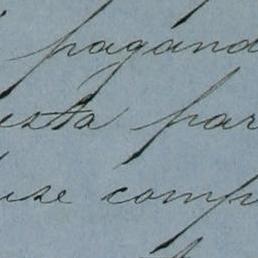 pagand
esta par
use comp